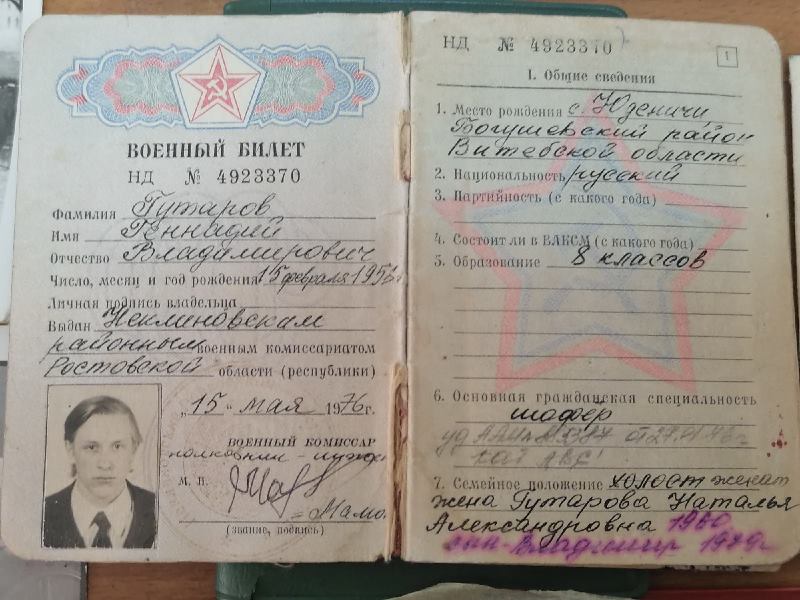 ВОЕННЫЙ БИЛЕТ
НД № 4923370
Фамилия Гутаров
Имя Геннадий
Отчество Владимирович
Число, месяц и год рождения 15 февраля 1956
Личная подпись владельца
Выдан Неклиновским
районным военным комиссариатом
Ростовской области (республики)
„15" мая 1976 г.
ВОЕННЫЙ КОМИССАР
М. П.
(звание, подпись)
НД № 4923370
1
I. Общие сведения
1. Место рождения с. Юденичи
Богушевский район
Витебской области
2. Национальность русский
3. Партийность (с какого года)
4. Состоит ли в ВЛКСМ (с какого года)
5. Образование 8 классов
6. Основная гражданская специальность
шофер
7. Семейное положение холост женат
жена Гутарова Наталья
Александровна 1960
сын - Владимир 1979г